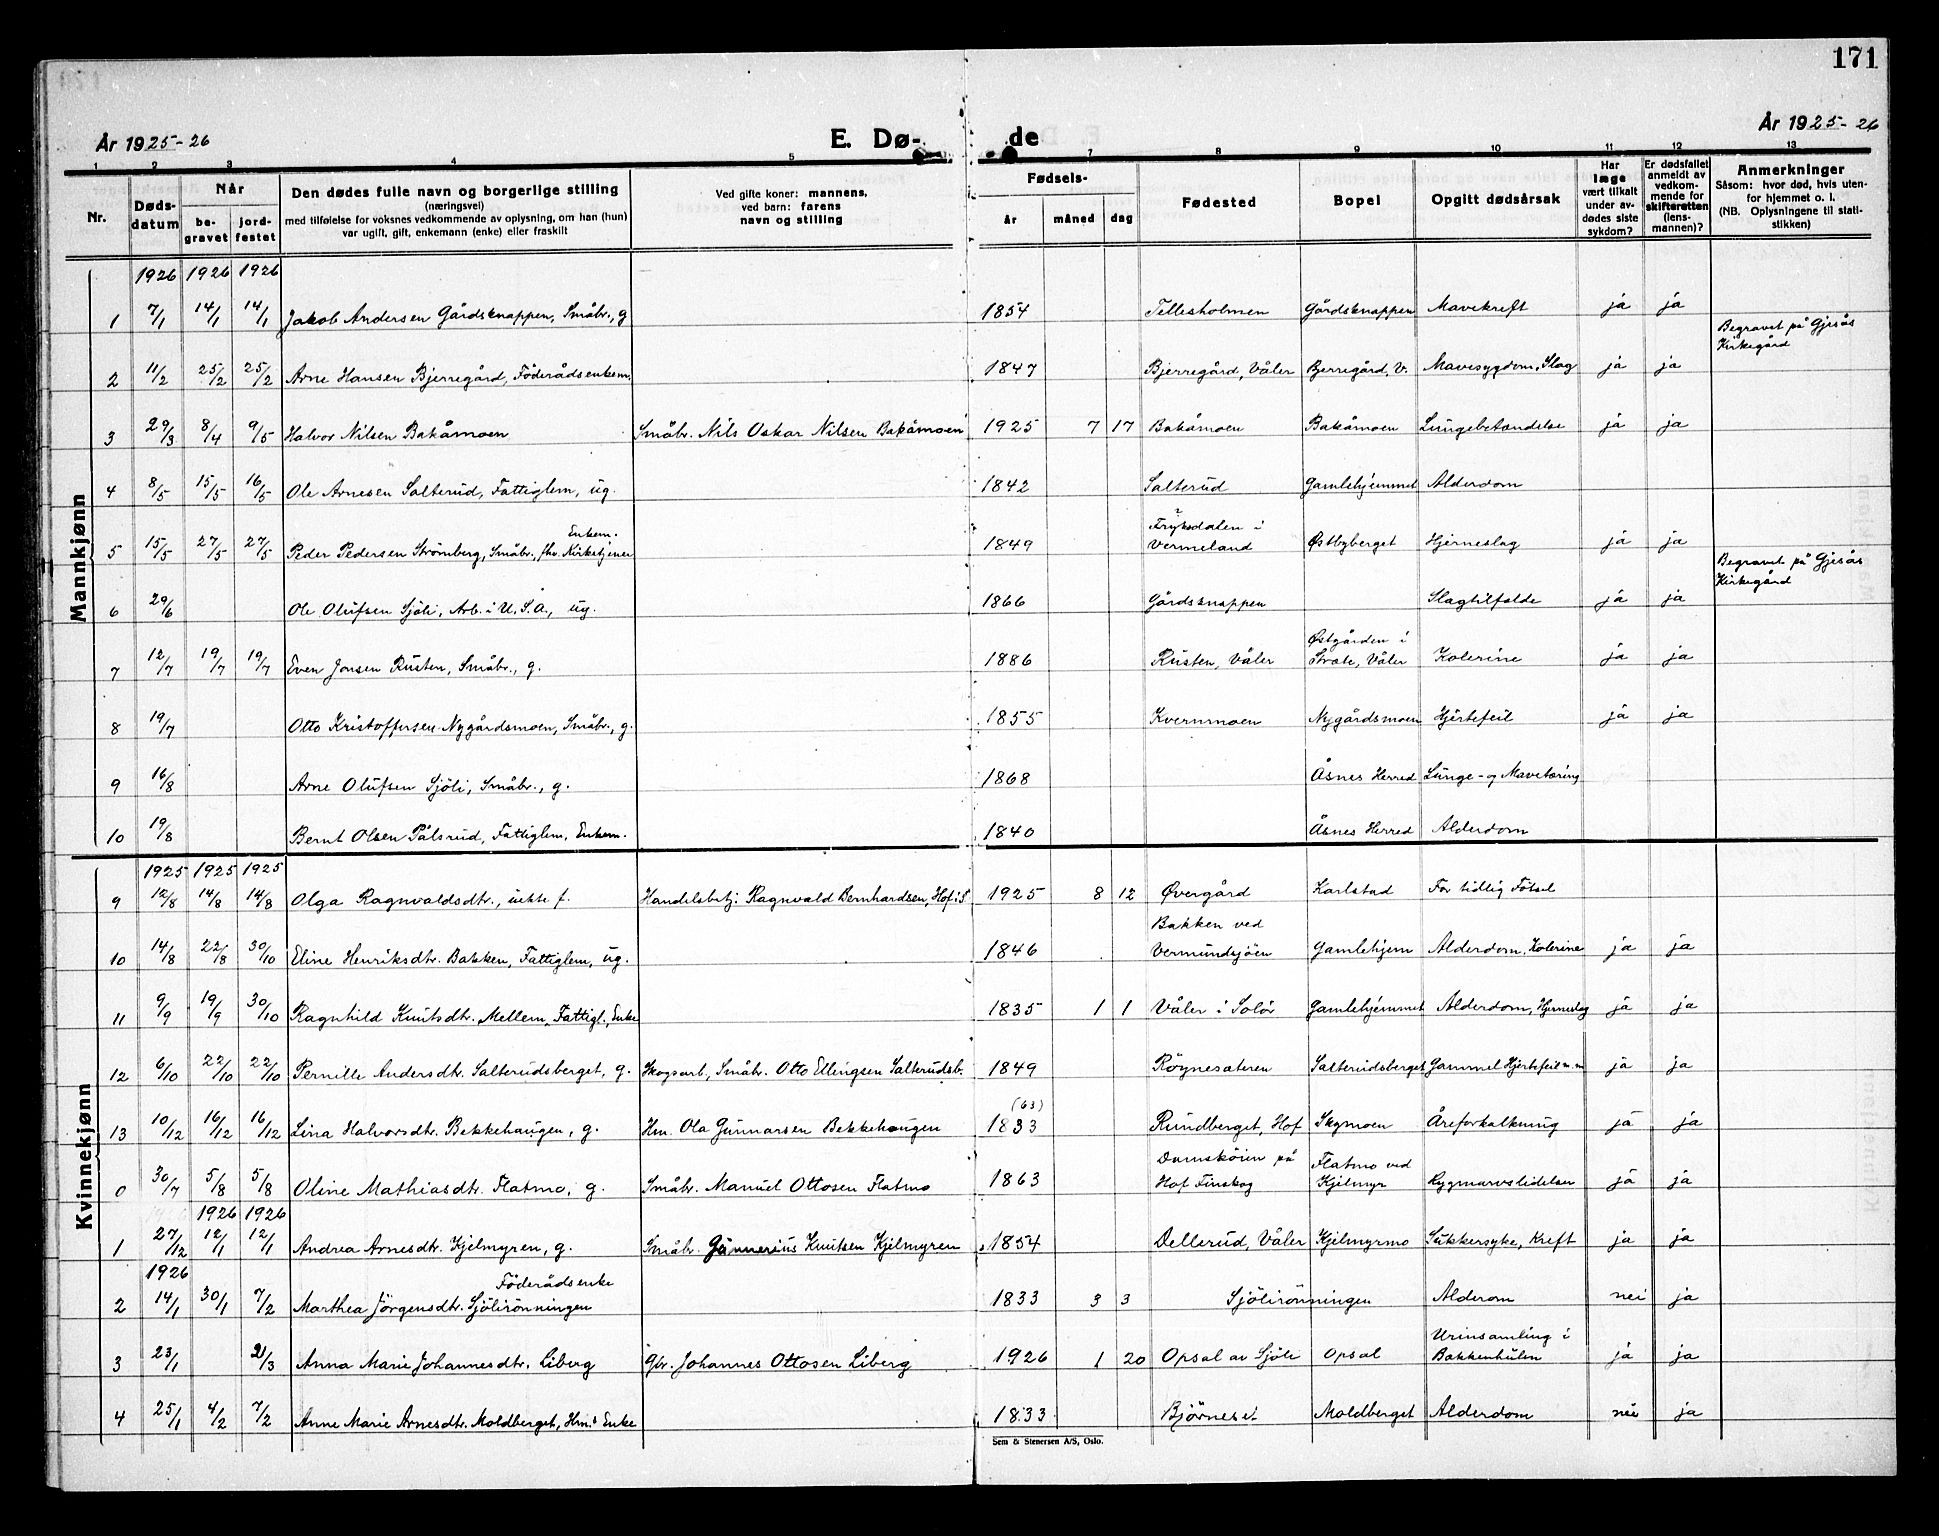 171
År 1925-26
E. Dø-
de
År 1925-26
1 2 3 4 5 7 8 9 10 11 12 13
Nr. | Døds-datum | Når be-gravet | jord-festet | Den dødes fulle navn og borgerlige stilling (næringsvei) med tilføielse for voksnes vedkommende av oplysning, om han (hun) var ugift, gift, enkemann (enke) eller fraskilt | Ved gifte koner: mannens, ved barn: farens navn og stilling | Fødsels- år | måned | dag | Fødested | Bopel | Opgitt dødsårsak | Har læge vært tilkalt under av-dødes siste sykdom? | Er dødsfallet anmeldt av vedkom-mende for skifteretten (lens-mannen)? | Anmerkninger Såsom: hvor død, hvis uten-for hjemmet o. l. (NB. Oplysningene til stati-stikken)
Mannkjønn
1926 1926 1926
1 7/1 14/1 14/1 Jakob Andersen Gårdsknappen, Småbr., g 1854 Tellesholmen Gårdsknappen Mavekreft ja ja
2 11/2 25/2 25/2 Arne Hansen Bjerregård, Föderådsenkem. 1847 Bjerregård, Våler Bjerregård, V. Mavesygdom, Slag ja ja Begravet på Gjesås Kirkegård
3 29/3 8/4 9/5 Halvor Nilsen Bakåmoen Småbr. Nils Oskar Nilsen Bakåmoen 1925 7 17 Bakåmoen Bakåmoen Lungebetændelse ja ja
4 8/5 15/5 16/5 Ole Arnesen Salterud, Fattiglem, ug. 1842 Salterud Gamlehjemmet Alderdom
5 15/5 27/5 27/5 Peder Pedersen Strömberg, Småbr., fhv. Kirketjener Enkem. 1849 Fryksdalen i Vermeland Østbyberget Hjerneslag ja ja
6 29/6 Ole Olufsen Sjöli, Arb. i U.S.A., ug. 1866 Gårdsknappen Slagtilfælde ja ja Begravet på Gjesås Kirkegård
7 12/7 19/7 19/7 Even Jonsen Rusten, Småbr., g. 1886 Rusten, Våler Østgården i Stræte, Våler Kolerine ja ja
8 19/7 Otto Kristoffersen Nygårdsmoen, Småbr., g. 1855 Kvernmoen Nygårdsmoen Hjertefeil ja ja
9 16/8 Arne Olufsen Sjöli, Småbr., g. 1868 Åsnes Herred Lunge- og Mavetæring
10 19/8 Bernt Olsen Pålsrud, Fattiglem, Enkem. 1840 Åsnes Herred Alderdom
Kvinnekjønn
1925 1925 1925
9 12/8 14/8 14/8 Olga Ragnvaldsdtr., uekte f. Handelsbetj. Ragnvald Bernhardsen, Hof i S 1925 8 12 Øvergård Karlstad For tidlig Fötsel
10 14/8 22/8 30/10 Eline Henriksdtr. Bakken, Fattiglem, ug. 1846 Bakken ved Vermundsjöen Gamlehjem Alderdom, Kolerine ja ja
11 9/9 19/9 30/10 Ragnhild Knutsdtr. Mellem, Fattigl., Enke 1835 1 1 Våler i Solör Gamlehjemmet Alderdom, Hjerneslag ja ja
12 6/10 22/10 22/10 Pernille Andersdtr. Salterudsberget, g. Skogsarb., Småbr. Otto Ellingsen Salterudsb. 1849 Röynesæteren Salterudsberget Gammel Hjertefeil m.m ja ja
13 10/12 16/12 16/12 Lina Halvorsdtr. Bekkehaugen, g. Hm. Ola Gunnarsen Bekkehaugen (63) 1833 Rundberget, Hof Skymoen Åreforkalkning ja ja
0 30/7 5/8 5/8 Oline Mathiasdtr. Flatmo, g. Småbr. Manuel Ottosen Flatmo 1863 Damskóien på Hof Finskog Flatmo ved Kjelmyr Rygmarvslidelser ja ja
1926 1926
1 27/12 12/1 12/1 Andrea Arnesdtr. Kjelmyren, g. Småbr. Gunnerius Knutsen Kjelmyren 1854 Dellerud, Våler Kjelmyrmo Sukkersyke, Kreft ja ja
1926
2 14/1 30/1 7/2 Marthea Jörgensdtr. Sjölirönningen Föderådsenke 1833 3 3 Sjölirönningen Alderom nei ja
3 23/1 21/3 Anna Marie Johannesdtr. Liberg Gbr. Johannes Ottosen Liberg 1926 1 20 Opsal av Sjöli Opsal Urinsamling i Bakkenhulen ja ja
4 25/1 4/2 7/2 Anne Marie Arnesdtr. Moldberget, Hm.s Enke 1833 Bjørneset Moldberget Alderdom nei ja
Sem & Stenersen A/S, Oslo.